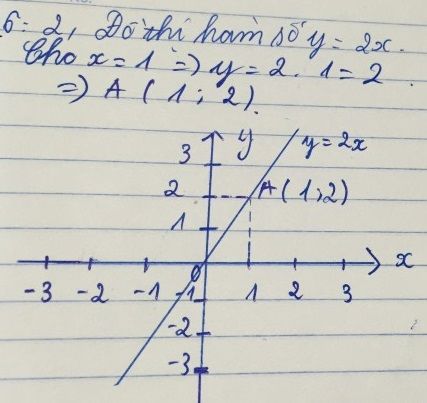 6: 2, Đồ thị hàm số y = 2x.
Cho x = 1 => y = 2. 1 = 2.
=> A ( 1 ; 2).
y
y = 2x
3
2
A ( 1 ; 2)
1
0
x
-3 -2 -1 -1 1 2 3
-2
-3